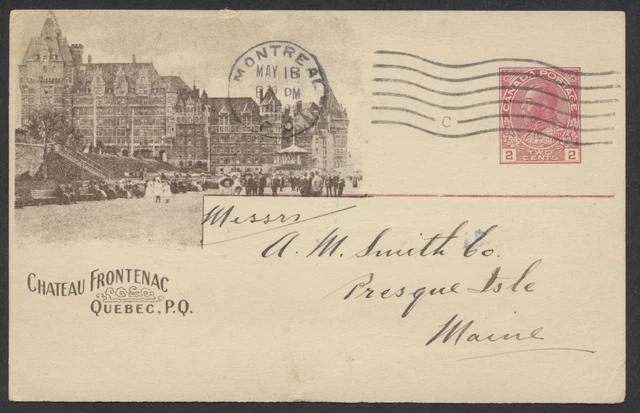 MONTREAL
MAY 18
PM
C
CANADA POSTAGE
2 TWO CENTS 2
Messrs
A. M. Smith Co.
Presque Isle
Maine
CHATEAU FRONTENAC
QUEBEC, P.Q.